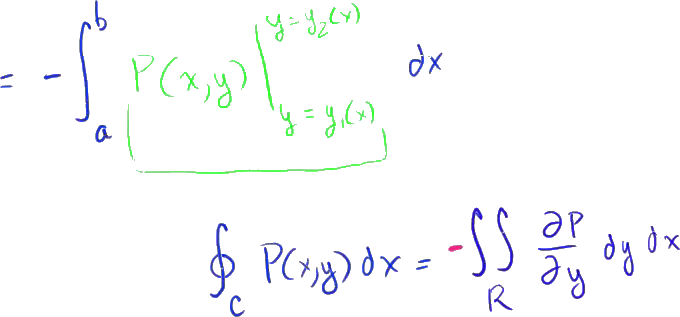 = - ∫_a^b P(x,y) |_{y = y₁(x)}^{y = y₂(x)} dx
∮_C P(x,y) dx = - ∬_R ∂P/∂y dy dx